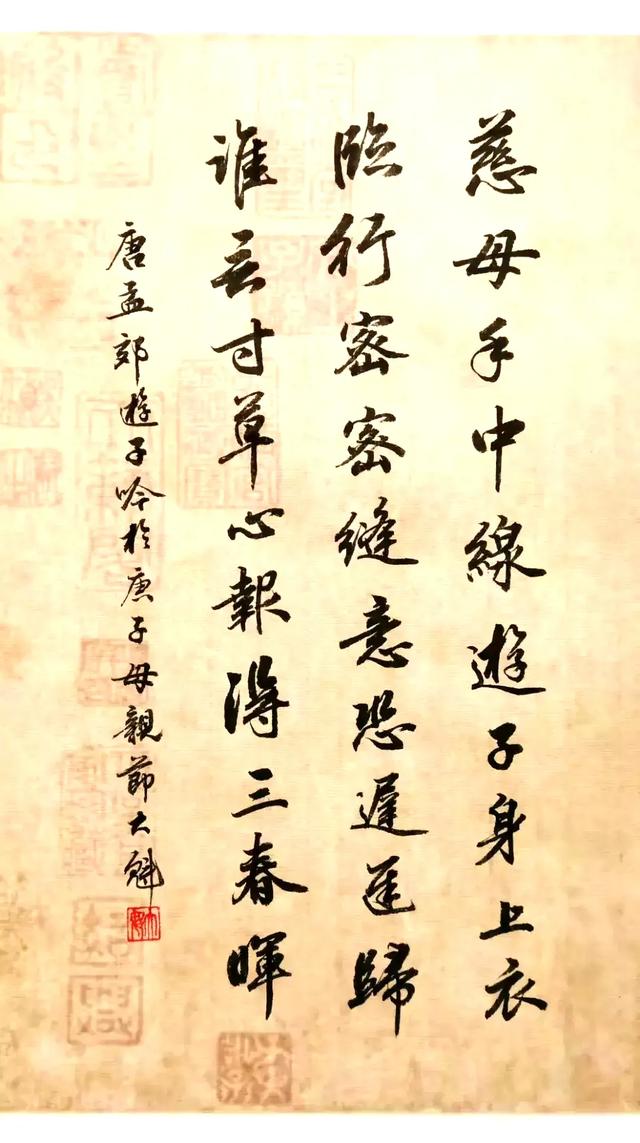 慈母手中線遊子身上衣
臨行密密縫意恐遲遲歸
誰言寸草心報得三春暉
唐孟郊遊子吟於庚子母親節大魁